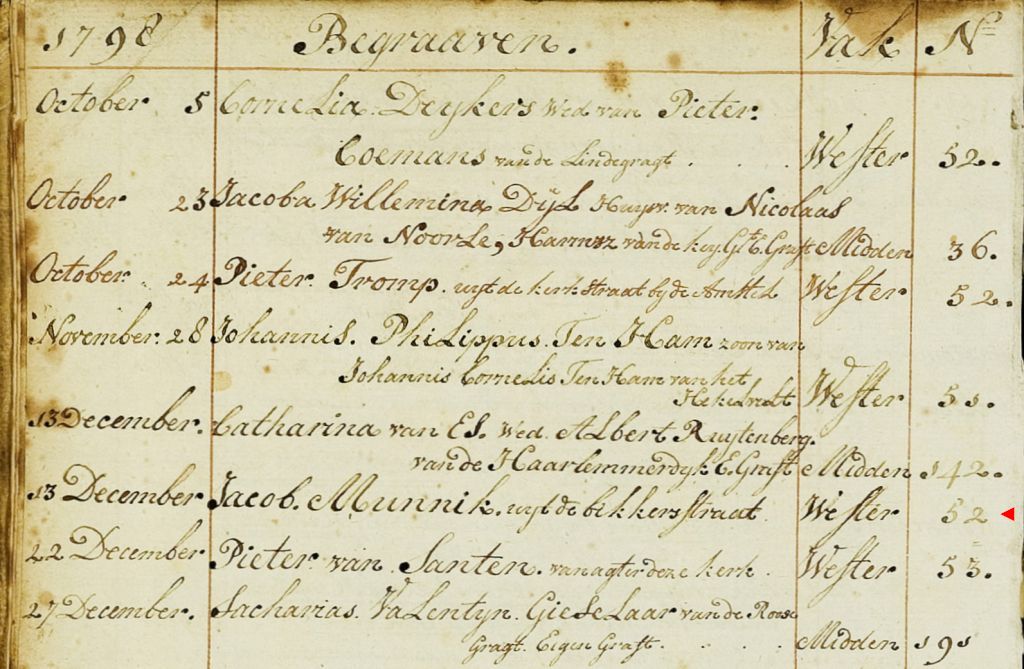 1798 Begraaven. Vak N=
October 5 Cornelia Deykers Wed van Pieter:
Coemans van de Lindegragt . . . . Wester 52.
October 23 Jacoba Willemina Dyl Huysv. van Nicolaas
van Noorle, Harmsz van de key. Gt. E. Graft Midden 36.
October 24 Pieter Tromp. uyt de kerkstraat by de Amstel Wester 52.
November 28 Johannis. Philippus. Ten Ham zoon van
Johannis Cornelis Ten Ham van het
Hekelvelt Wester 51.
13 December. Catharina van Es. Wed. Albert Ruytenberg.
van de Haarlemmerdyk E. Graft Midden 142.
13 December Jacob. Munnik. uyt de bekkersstraat. Wester 52
22 December Pieter van Santen. van agter deze kerk . Wester 53.
27 December. Sacharias. Valentyn. Gieselaar van de Roose
Gragt. Eigen Graft. . . . . Midden 191